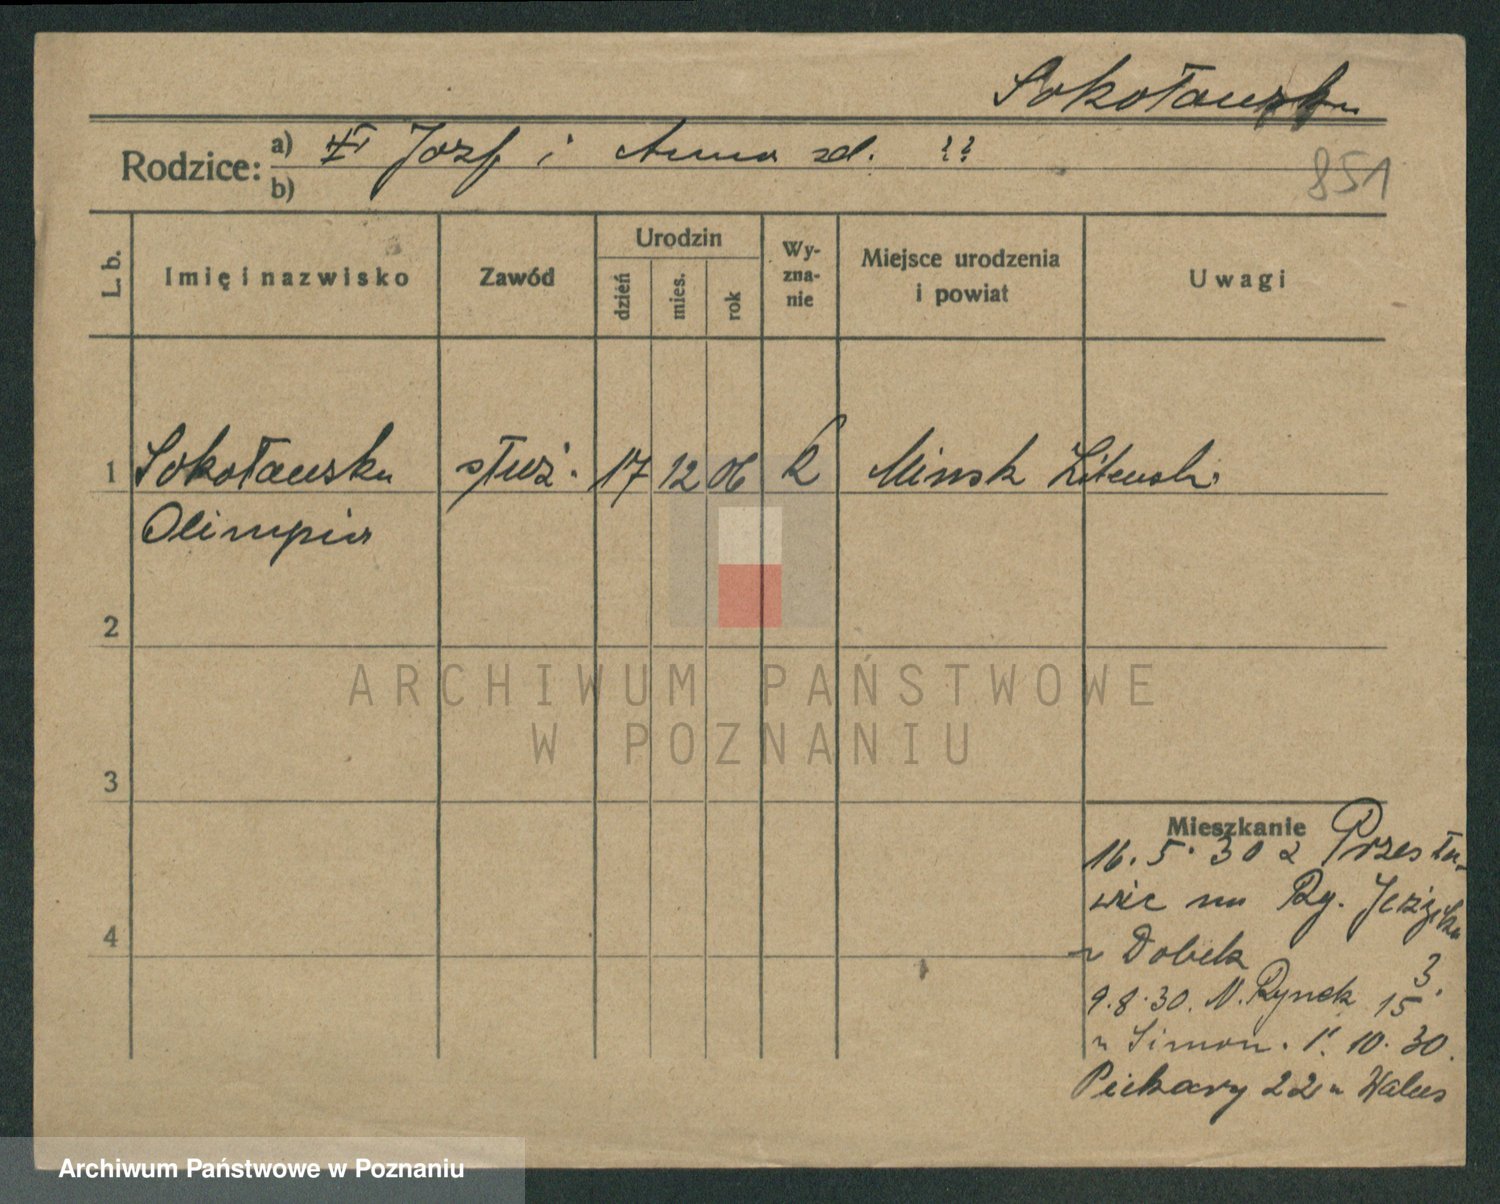 Sokołowska
Rodzice: a) Józf i Anna zd. ??
b)
851
L. b.
Imię i nazwisko
Zawód
Urodzin
dzień
mies.
rok
Wy-
zna-
nie
Miejsce urodzenia
i powiat
Uwagi
1 Sokołowska służ. 17 12 06 k Mińsk Litewski
Olimpia
2
3
4
Mieszkanie
16. 5. 30 z
na Rg.
u Dobek 3.
9. 8. 30. N. Rynek 15
u Simon. 1. 10. 30.
Piekary 22 u Walus
ARCHIWUM PAŃSTWOWE
W POZNANIU
Archiwum Państwowe w Poznaniu